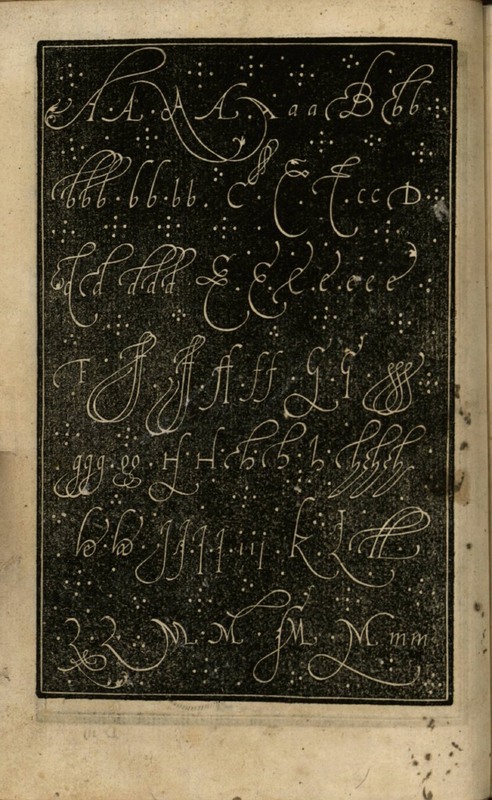 A · A · A · A · A a a B bb
bbb · bb · bb · C · C · C · cc D
d d ddd E · E · e e · e e e
F · F · F ff · ff · G G · ggg
ggg · gg · H · H · h h h · h · h h h h
k · k · J J J J · iij · k · L ll
R · R · M · M · M · M · mm